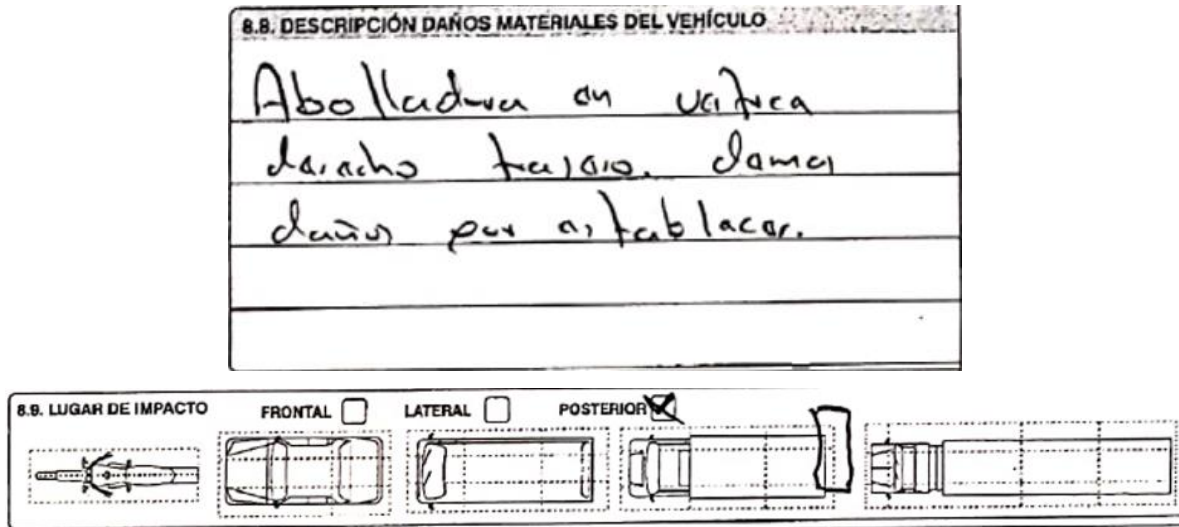 8.8. DESCRIPCIÓN DAÑOS MATERIALES DEL VEHÍCULO
Abolladura en
derecho trasero. demas
daños por establecer.
8.9. LUGAR DE IMPACTO FRONTAL LATERAL POSTERIOR